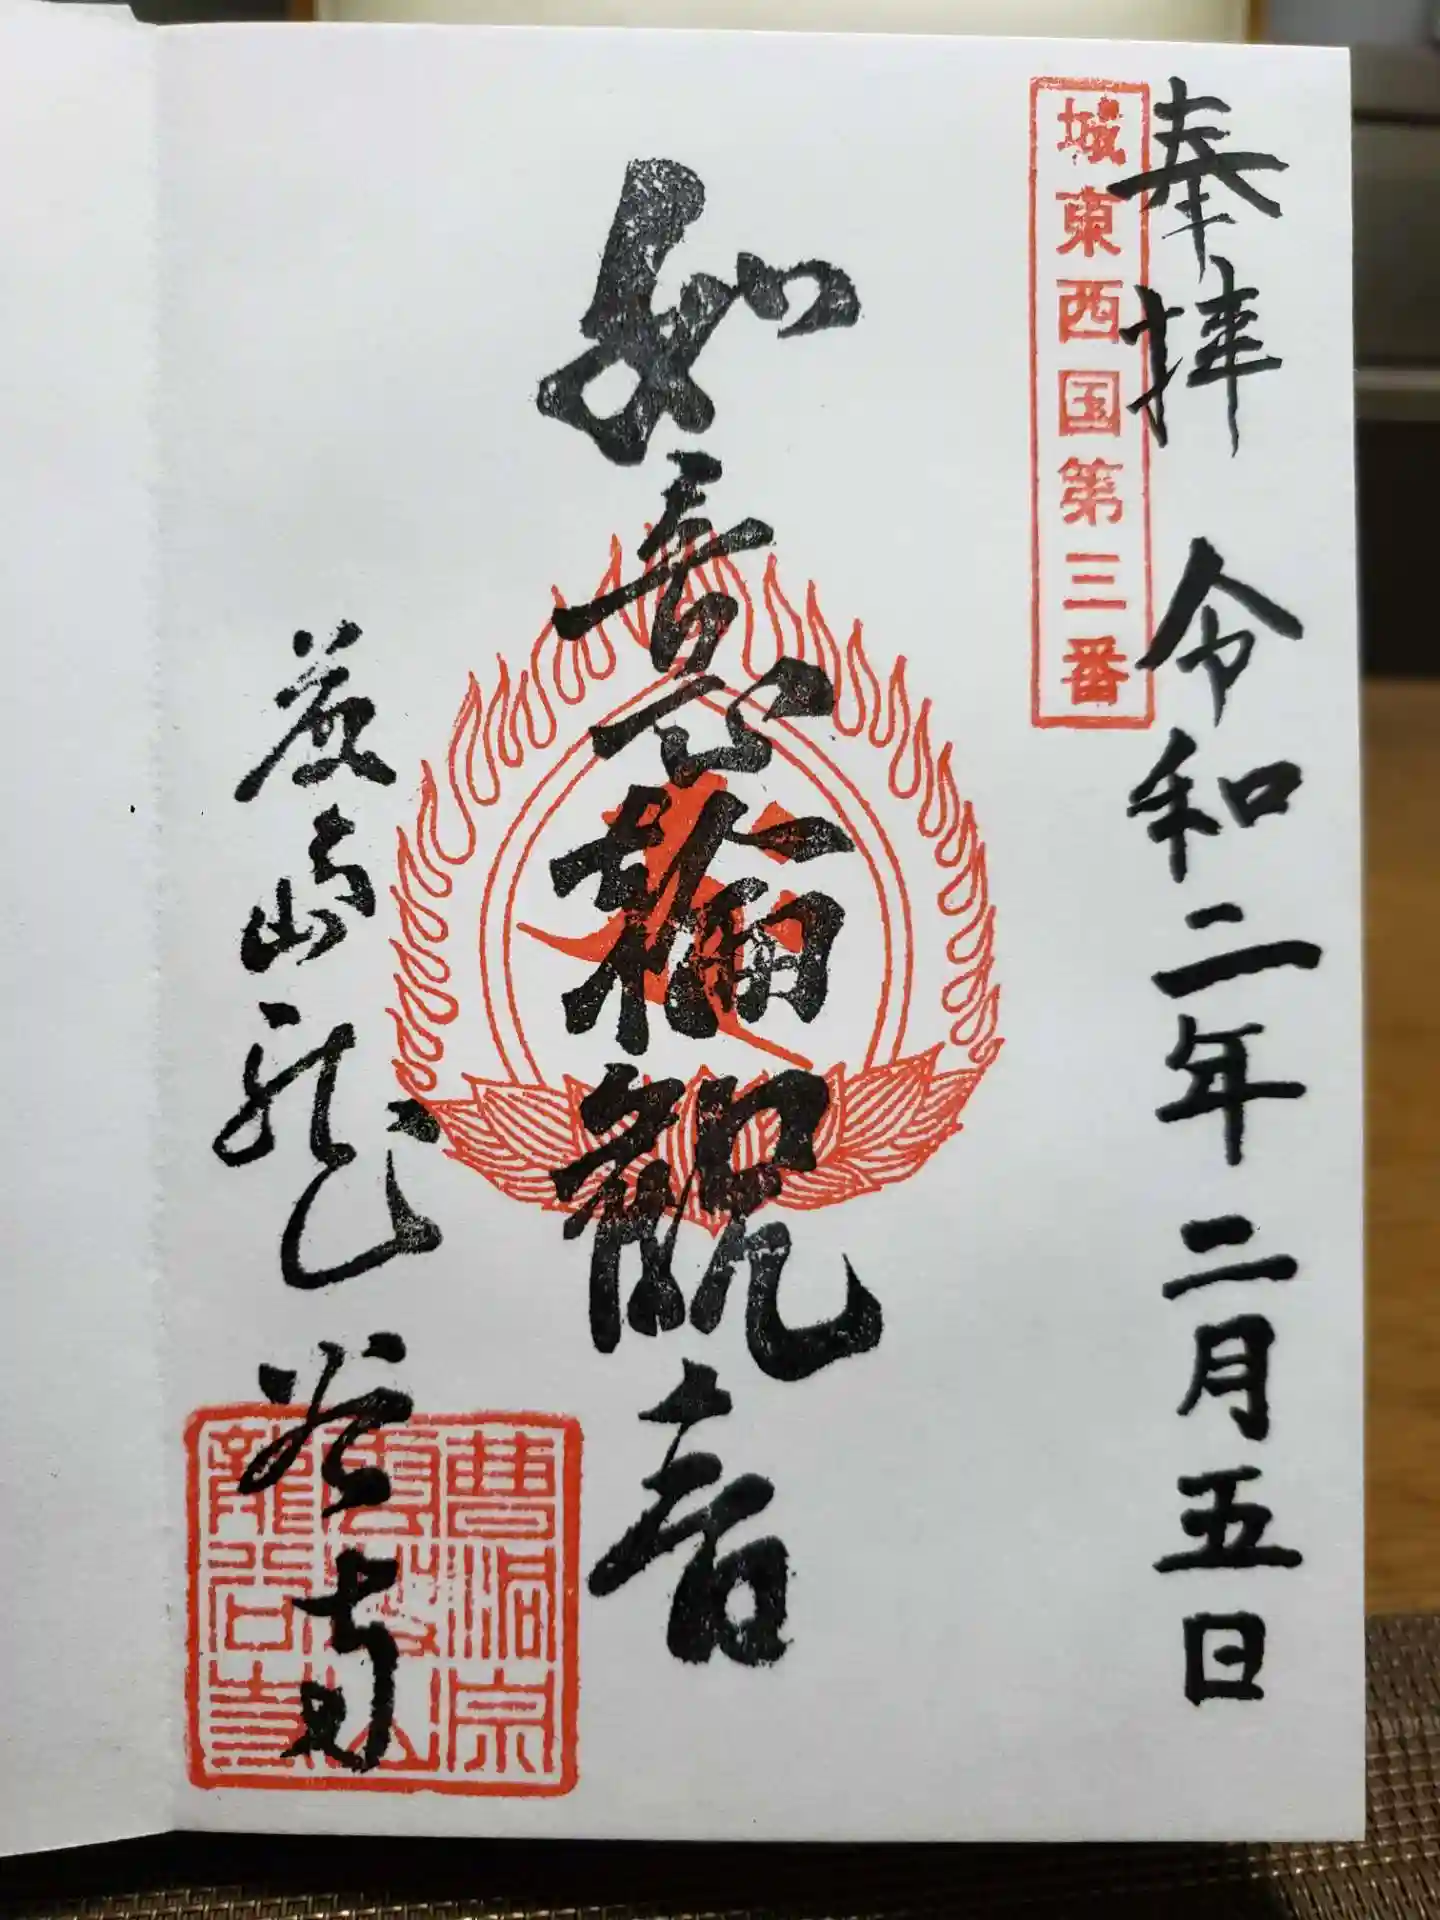 奉拝 令和二年二月五日
城東西国第三番
如意輪観音
山龍谷寺
曹洞宗
龍谷寺